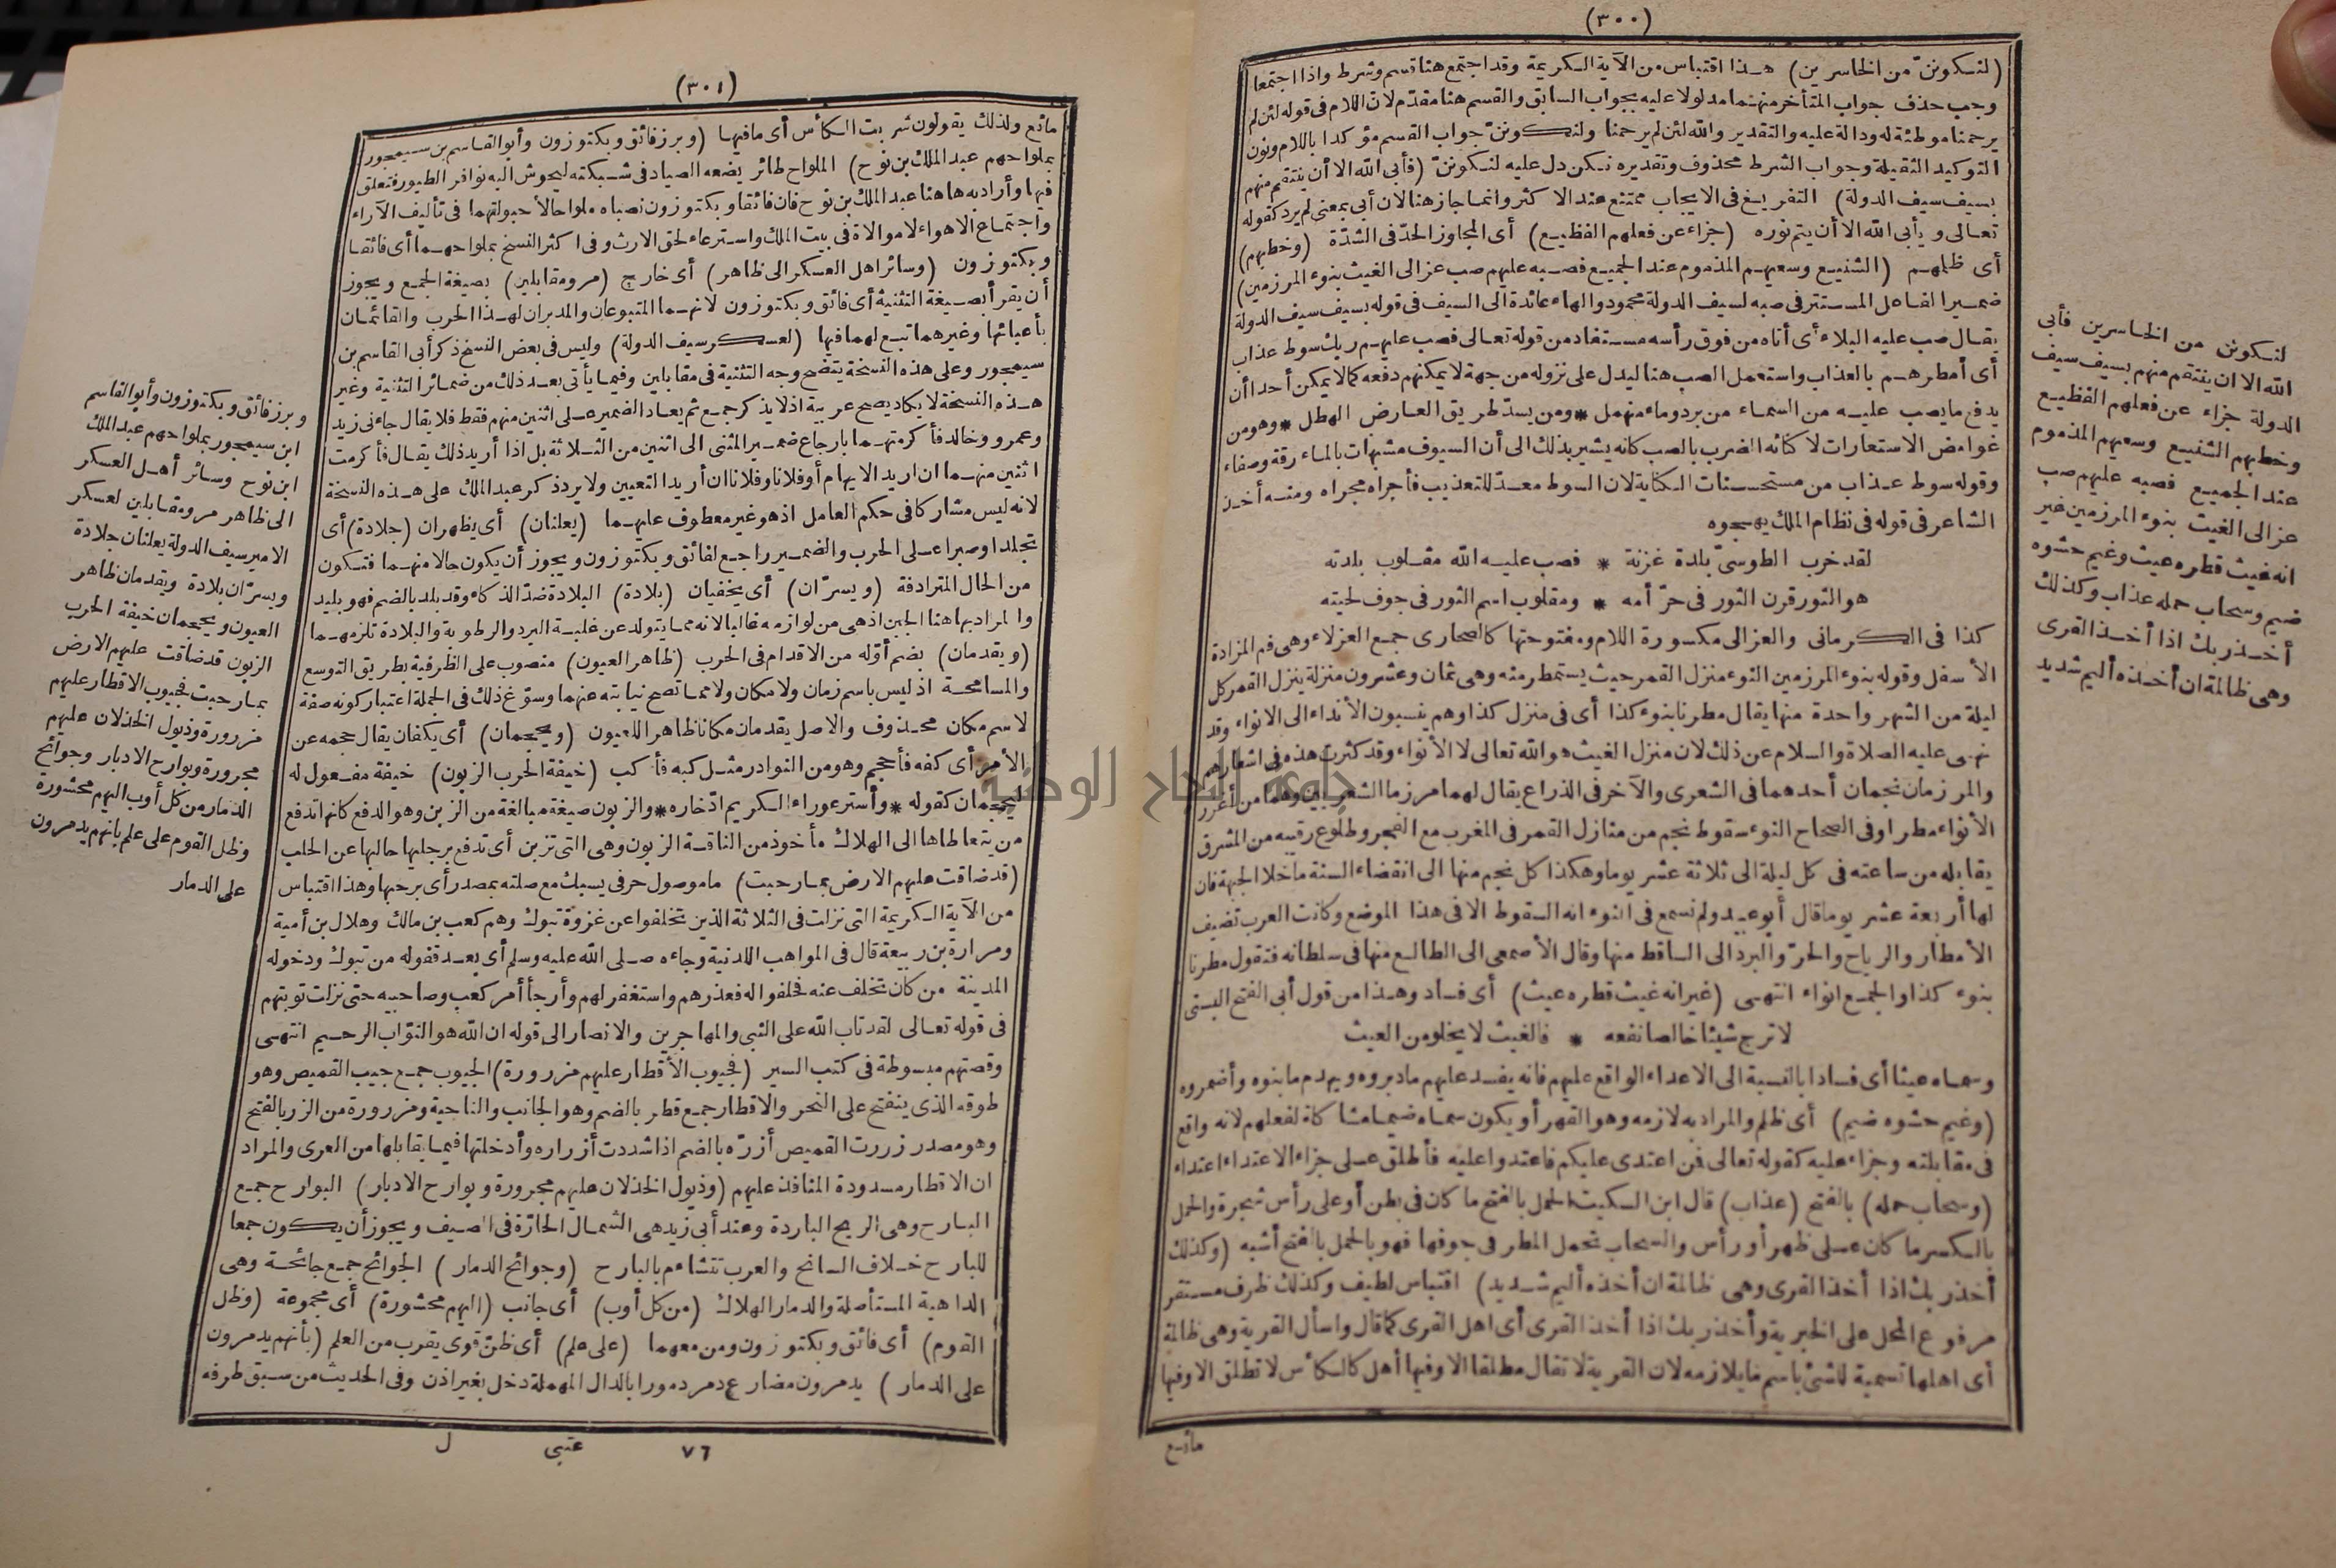 (٣٠٠)
(لنكوننّ من الخاسرين) هذا اقتباس من الآية الكريمة وقد اجتمع هنا قسم وشرط واذا اجتمعا
وجب حذف جواب المتأخر منهما مدلولا عليه بجواب السابق والقسم هنا مقدّم لان اللام فى قوله لئن لم
يرحمنا موطئة له ودالة عليه والتقدير والله لئن لم يرحمنا ولنكوننّ جواب القسم مؤكدا باللام ونون
التوكيد الثقيلة وجواب الشرط محذوف وتقديره نكن دل عليه لنكوننّ (فأبى الله الا أن ينتقم منهم
بسيف سيف الدولة) التفريغ فى الايجاب ممتنع عند الاكثر وانما جاز هنا لان أبى بمعنى لم يرد كقوله
تعالى ويأبى الله الا أن يتم نوره (جزاء عن فعلهم الفظيع) أى المجاوز الحدّ فى الشدّة (وخطبهم)
أى ظلمهم (الشنيع وسعيهم المذموم عند الجميع فصبه عليهم صب عزالى الغيث بنوء المرزمين)
ضمير الفاعل المستتر فى صبه لسيف الدولة محمود والهاء عائدة الى السيف فى قوله بسيف سيف الدولة
يقال صب عليه البلاء أى أتاه من فوق رأسه مستفاد من قوله تعالى فصب عليهم ربك سوط عذاب
أى أمطرهم بالعذاب واستعمل الصب هنا ليدل على نزوله من جهة لا يمكنهم دفعه كما لا يمكن أحدا أن
يدفع ما يصب عليه من السماء من برد وماء منهمل * ومن يسدّ طريق العارض الهطل * وهو من
غوامض الاستعارات لا كنائه الضرب بالصب كانه يشير بذلك الى أن السيوف مشبهات بالماء رقة وصفاء
وقوله سوط عذاب من مستحسنات الكناية لان السوط معدّ للتعذيب فأجراه مجراه ومنه أخذ
الشاعر فى قوله فى نظام الملك يهجوه
لقد خرب الطوسىّ بلدة غزنة * فصب عليه الله مقلوب بلدته
هو الثور قرن الثور فى حرّ أمه * ومقلوب اسم الثور فى جوف لحيته
كذا فى الكرمانى والعزالى مكسورة اللام ومفتوحتها كالصحارى جمع العزلاء وهى فم المزادة
الأسفل وقوله بنوء المرزمين النوء منزل القمر حيث يستمطر منه وهى ثمان وعشرون منزلة ينزل القمر كل
ليلة من الشهر واحدة منها يقال مطرنا بنوء كذا أى فى منزل كذا وهم ينسبون الأنداء الى الانواء وقد
نهى عليه الصلاة والسلام عن ذلك لان منزل الغيث هو الله تعالى لا الأنواء وقد كثرت هذه فى اشعارهم
والمرزمان نجمان أحدهما فى الشعرى والآخر فى الذراع يقال لهما مرزما الشعريين وهما من أغزر
الأنواء مطرا وفى الصحاح النوء سقوط نجم من منازل القمر فى المغرب مع الفجر وطلوع رقيبه من المشرق
يقابله من ساعته فى كل ليلة الى ثلاثة عشر يوما وهكذا كل نجم منها الى انقضاء السنة ما خلا الجبهة فان
لها أربعة عشر يوما قال أبو عبيد ولم نسمع فى النوء انه السقوط الا فى هذا الموضع وكانت العرب تضيف
الأمطار والرياح والحرّ والبرد الى الساقط منها وقال الأصمعى الى الطالع منها فى سلطانه فتقول مطرنا
بنوء كذا والجمع انواء انتهى (غير انه غيث قطره عيث) أى فساد وهذا من قول أبى الفتح البستى
لا ترج شيئا خالصا نفعه * فالغيث لا يخلو من العيث
وسماه عيثا أى فسادا بالنسبة الى الاعداء الواقع عليهم فانه يفسد عليهم ما دبروه ويهدم ما بنوه وأضمروه
(وغيم حشوه ضيم) أى ظلم والمراد به لازمه وهو القهر أو يكون سماه ضيما مشاكلة لفعلهم لانه واقع
فى مقابلته وجزاء عليه كقوله تعالى فمن اعتدى عليكم فاعتدوا عليه فأطلق على جزاء الاعتداء اعتداء
(وسحاب حمله) بالفتح (عذاب) قال ابن السكيت الحمل بالفتح ما كان فى بطن أو على رأس شجرة والحمل
بالكسر ما كان على ظهر أو رأس والسحاب تحمل المطر فى جوفها فهو بالحمل بالفتح أشبه (وكذلك
أخذ ربك اذا أخذ القرى وهى ظالمة ان أخذه أليم شديد) اقتباس لطيف وكذلك ظرف مستقر
مرفوع المحل على الخبرية وأخذ ربك اذا أخذ القرى أى اهل القرى كما قال واسأل القرية وهى ظالمة
أى اهلها تسمية للشئ باسم ما يلازمه لان القرية لا تقال مطلقا الا وفيها أهل كالكأس لا تطلق الا وفيها
مائع
لنكونن من الخاسرين فأبى
الله الا ان ينتقم منهم بسيف سيف
الدولة جزاء عن فعلهم الفظيع
وخطبهم الشنيع وسعيهم المذموم
عند الجميع فصبه عليهم صب
عزالى الغيث بنوء المرزمين غير
انه غيث قطره عيث وغيم حشوه
ضيم وسحاب حمله عذاب وكذلك
أخذ ربك اذا أخذ القرى
وهى ظالمة ان أخذه أليم شديد
(٣٠١)
مائع ولذلك يقولون شربت الكأس أى ما فيها (وبرز فائق وبكتوزون وأبو القاسم بن سيمجور
بملواحهم عبد الملك بن نوح) الملواح طائر يضعه الصياد فى شبكته ليحوش اليه نوافر الطيور فتعلق
فيها وأراد به هاهنا عبد الملك بن نوح فان فائقا وبكتوزون نصباه ملواحا لأحبولتهما فى تأليف الآراء
واجتماع الاهواء لا موالاة فى بيت الملك واسترعاء لحق الارث وفى اكثر النسخ بملواحهما أى فائقا
وبكتوزون (وسائر اهل العسكر الى ظاهر) أى خارج (مرو مقابلين) بصيغة الجمع ويجوز
أن يقرأ بصيغة التثنية أى فائق وبكتوزون لانهما المتبوعان والمدبران لهذا الحرب والقائمان
بأعبائها وغيرهما تبع لهما فيها (لعسكر سيف الدولة) وليس فى بعض النسخ ذكر أبى القاسم بن
سيمجور وعلى هذه النسخة يتضح وجه التثنية فى مقابلين وفيما يأتى بعد ذلك من ضمائر التثنية وغير
هذه النسخة لا يكاد يصح عربية اذ لا يذكر جمع ثم يعاد الضمير على اثنين منهم فقط فلا يقال جاءنى زيد
وعمرو وخالد فأكرمتهما بارجاع ضمير المثنى الى اثنين من الثلاثة بل اذا أريد ذلك يقال فأكرمت
اثنين منهما ان اريد الايهام أو فلانا وفلانا ان أريد التعيين ولا يرد ذكر عبد الملك على هذه النسخة
لانه ليس مشاركا فى حكم العامل اذ هو غير معطوف عليهما (يعلنان) أى يظهران (جلادة) أى
تجلدا وصبرا على الحرب والضمير راجع لفائق وبكتوزون ويجوز أن يكون حالا منهما فتكون
من الحال المترادفة (ويسرّان) أى يخفيان (بلادة) البلادة ضدّ الذكاء وقد بلد بالضم فهو بليد
والمراد بها هنا الجبن اذ هى من لوازمه غالبا لانه مما يتولد عن غلبة البرد والرطوبة والبلادة تلزمهما
(ويقدمان) بضم أوّله من الاقدام فى الحرب (ظاهر العيون) منصوب على الظرفية بطريق التوسع
والمسامحة اذ ليس باسم زمان ولا مكان ولا مما تصح نيابته عنهما وسوّغ ذلك فى الجملة اعتبار كونه صفة
لاسم مكان محذوف والاصل يقدمان مكانا ظاهرا للعيون (ويحجمان) أى يكفان يقال حجمه عن
الأمر أى كفه فأحجم وهو من النوادر مثل كبه فأكب (خيفة الحرب الزبون) خيفة مفعول له
ليحجمان كقوله * وأستر عوراء الكريم ادّخاره * والزبون صيغة مبالغة من الزبن وهو الدفع كانها تدفع
من يتعاطاها الى الهلاك مأخوذ من الناقة الزبون وهى التى تزبن أى تدفع برجليها حالبها عن الحلب
(قد ضاقت عليهم الارض بما رحبت) ما موصول حرفى يسبك مع صلته بمصدر أى برحبها وهذا اقتباس
من الآية الكريمة التى نزلت فى الثلاثة الذين تخلفوا عن غزوة تبوك وهم كعب بن مالك وهلال بن أمية
ومرارة بن ربيعة قال فى المواهب اللدنية وجاءه صلى الله عليه وسلم أى بعد قفوله من تبوك ودخوله
المدينة من كان تخلف عنه فحلفوا له فعذرهم واستغفر لهم وأرجأ أمر كعب وصاحبيه حتى نزلت توبتهم
فى قوله تعالى لقد تاب الله على النبى والمهاجرين والانصار الى قوله ان الله هو التوّاب الرحيم انتهى
وقصتهم مبسوطة فى كتب السير (فجيوب الأقطار عليهم مزرورة) الجيوب جمع جيب القميص وهو
طوقه الذى ينفتح على النحر والاقطار جمع قطر بالضم وهو الجانب والناحية ومزرورة من الزر بالفتح
وهو مصدر زررت القميص أزرّه بالضم اذا شددت أزراره وأدخلتها فيما يقابلها من العرى والمراد
ان الاقطار مسدودة المنافذ عليهم (وذيول الخذلان عليهم مجرورة وبوارح الادبار) البوارح جمع
البارح وهى الريح الباردة وعند أبى زيد هى الشمال الحارّة فى الصيف ويجوز أن يكون جمعا
للبارح خلاف السانح والعرب تتشاءم بالبارح (وجوائح الدمار) الجوائح جمع جائحة وهى
الداهية المستأصلة والدمار الهلاك (من كل أوب) أى جانب (اليهم محشورة) أى مجموعة (وظل
القوم) أى فائق وبكتوزون ومن معهما (على علم) أى ظنّ قوى يقرب من العلم (بأنهم يدمرون
على الدمار) يدمرون مضارع دمر دمورا بالدال المهملة دخل بغير اذن وفى الحديث من سبق طرفه
٧٦ عتبى ل
وبرز فائق وبكتوزون وأبو القاسم
ابن سيمجور بملواحهم عبد الملك
ابن نوح وسائر أهل العسكر
الى ظاهر مرو مقابلين لعسكر
الامير سيف الدولة يعلنان جلادة
ويسرّان بلادة ويقدمان ظاهر
العيون ويحجمان خيفة الحرب
الزبون قد ضاقت عليهم الارض
بما رحبت فجيوب الاقطار عليهم
مزرورة وذيول الخذلان عليهم
مجرورة وبوارح الادبار وجوائح
الدمار من كل أوب اليهم محشورة
وظل القوم على علم بانهم يدمرون
على الدمار
جامعة النجاح الوطنية